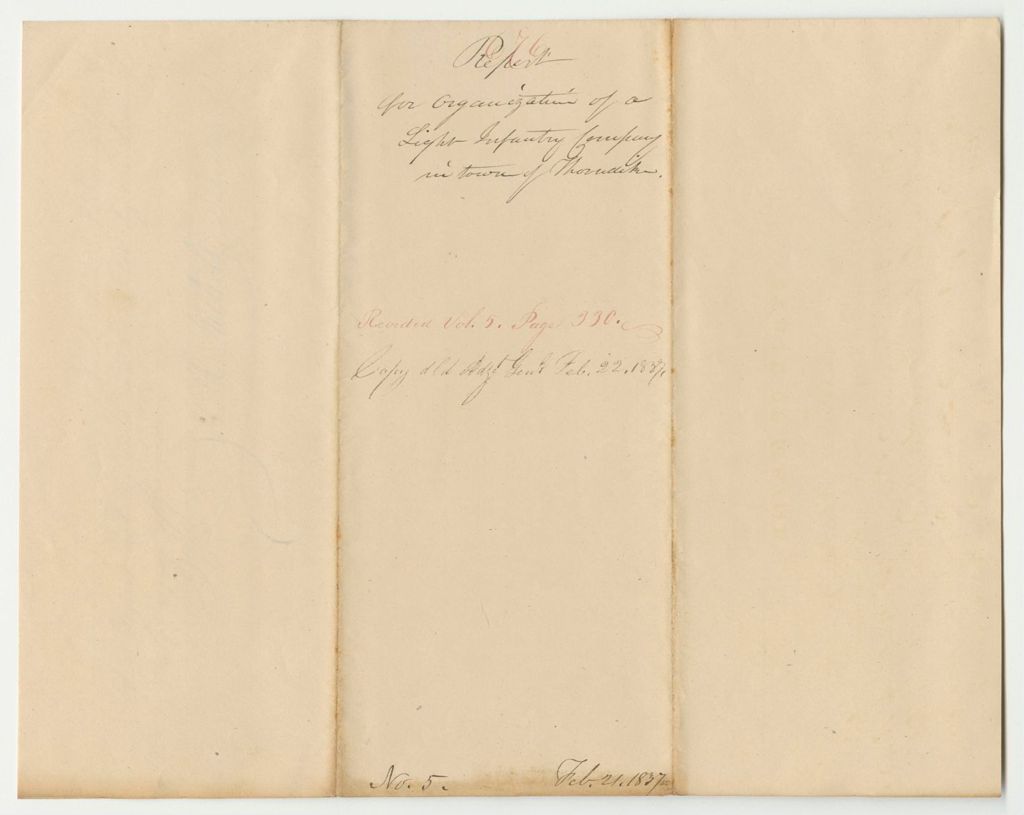 Report
for organization of a
Light Infantry Company
in town of Thorndike.
Recorded Vol. 5. Page 330.
Copy dld Adjt Genl Feb. 22. 1837.
No. 5. Feb. 21. 1837